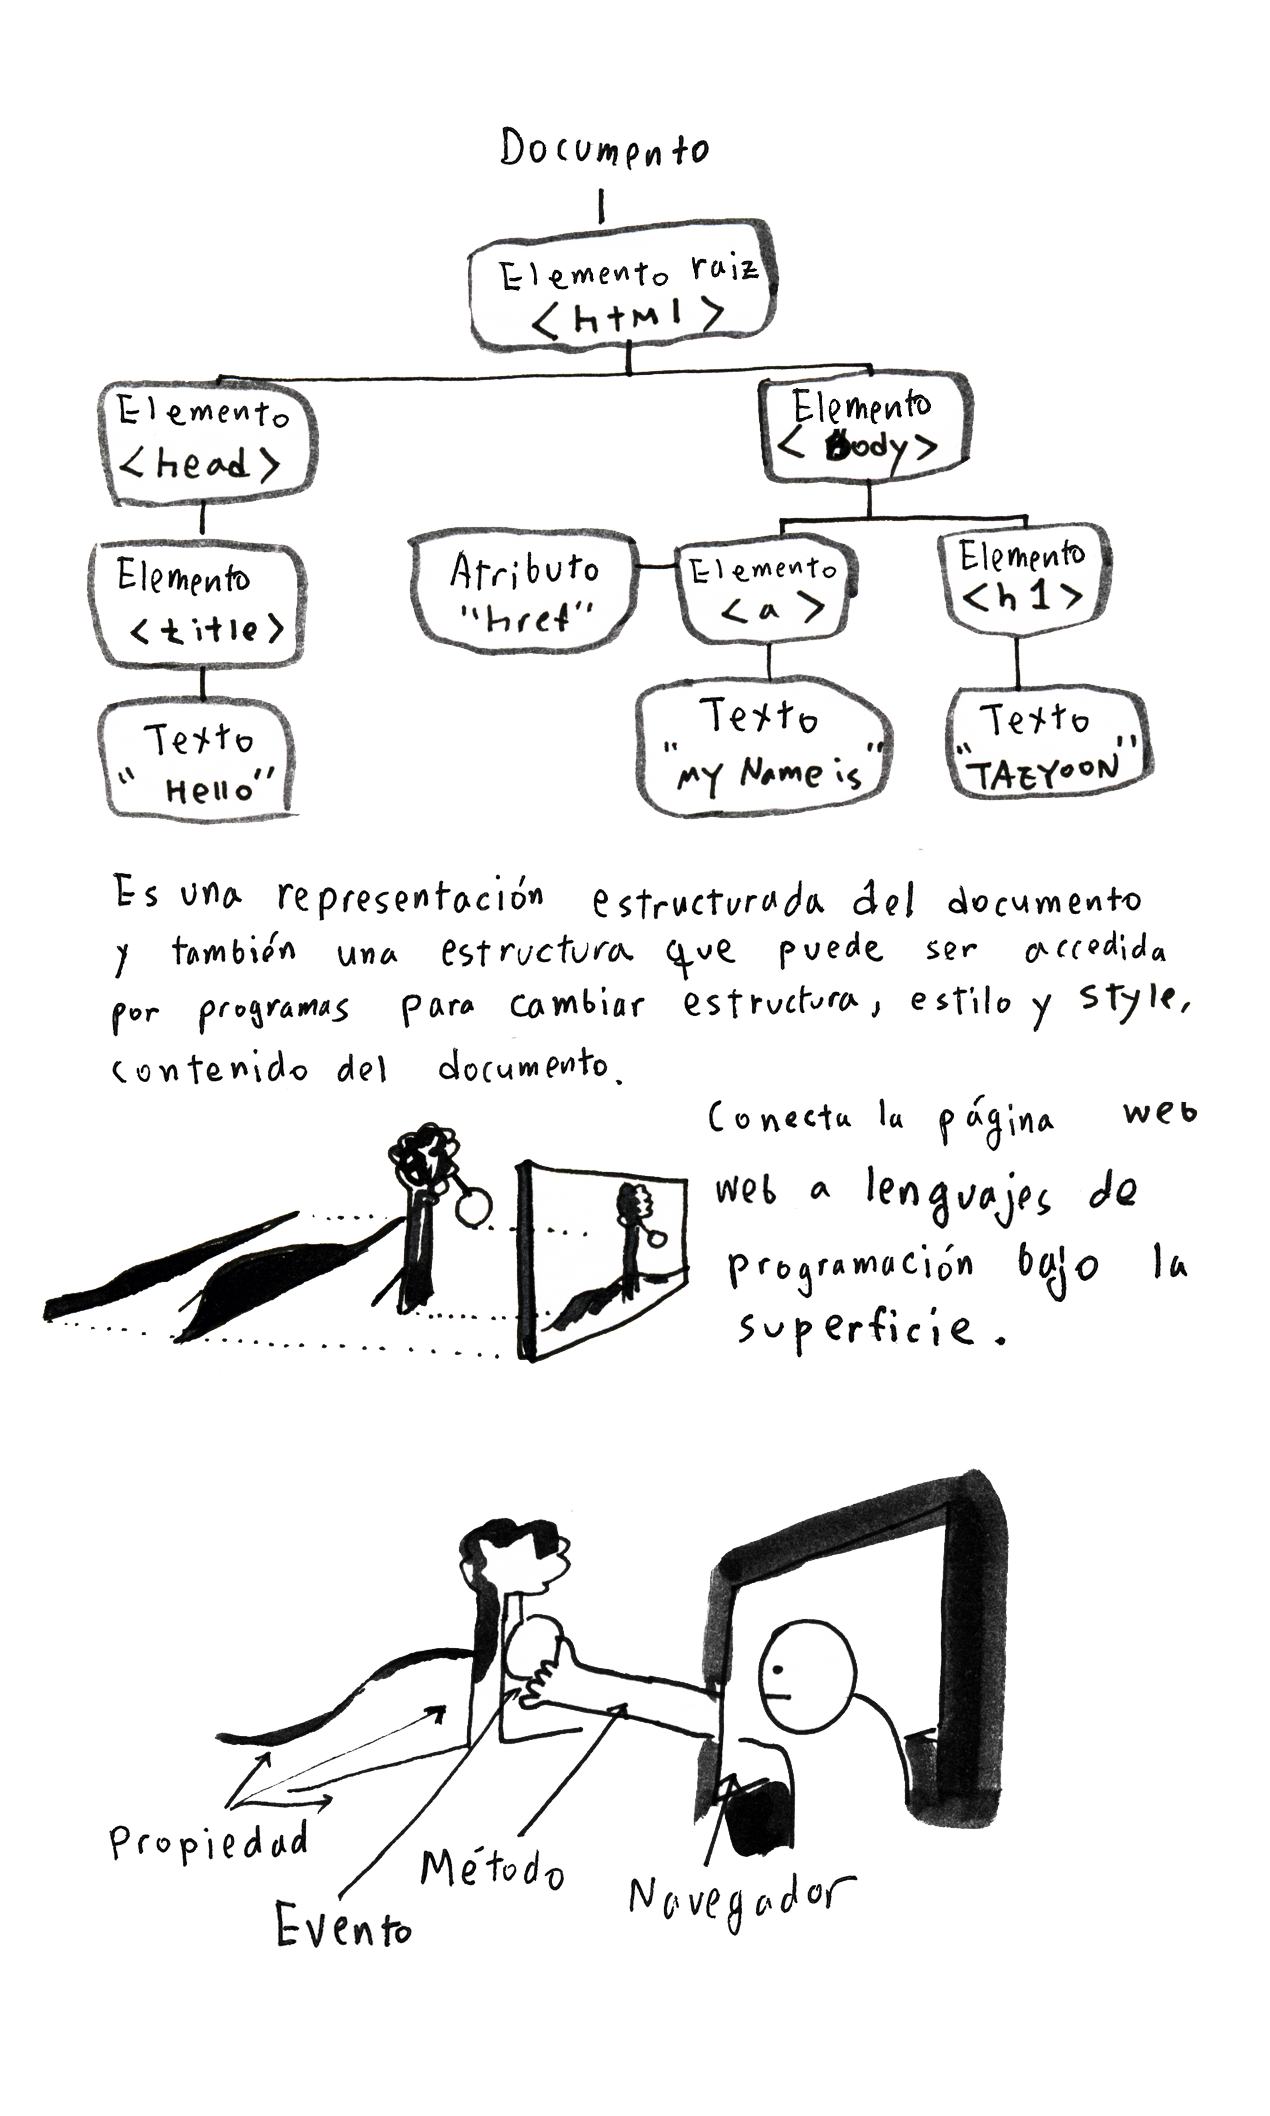 Documento
Elemento raiz
<html>
Elemento
<head>
Elemento
<Body>
Elemento
<title>
Atributo
"href"
Elemento
<a>
Elemento
<h1>
Texto
"Hello"
Texto
"MY Name is"
Texto
"TAEYOON"
Es una representación estructurada del documento
y también una estructura que puede ser accedida
por programas para cambiar estructura, estilo y style,
contenido del documento.
Conecta la página web
web a lenguajes de
programación bajo la
superficie.
Propiedad
Evento
Método
Navegador